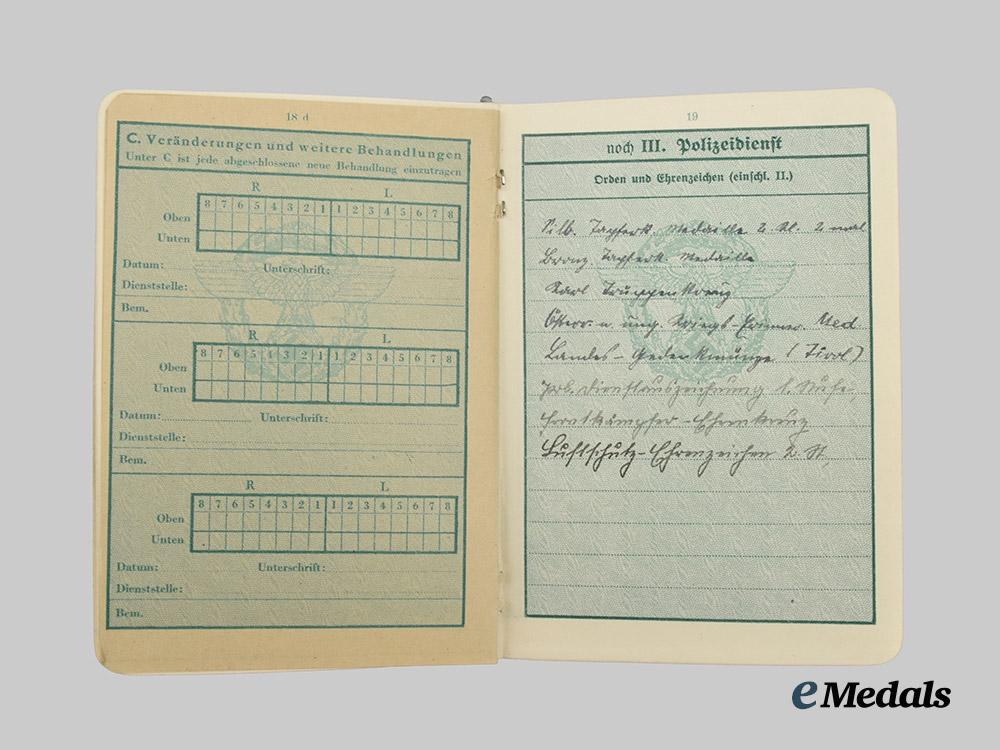 18 d
C. Veränderungen und weitere Behandlungen
Unter C ist jede abgeschlossene neue Behandlung einzutragen
R L
8 7 6 5 4 3 2 1 1 2 3 4 5 6 7 8
Oben
Unten
Datum: Unterschrift:
Dienststelle:
Bem.
R L
8 7 6 5 4 3 2 1 1 2 3 4 5 6 7 8
Oben
Unten
Datum: Unterschrift:
Dienststelle:
Bem.
R L
8 7 6 5 4 3 2 1 1 2 3 4 5 6 7 8
Oben
Unten
Datum: Unterschrift:
Dienststelle:
Bem.
19
noch III. Polizeidienst
Orden und Ehrenzeichen (einschl. II.)
Silb. Tapferk. Medaille 2. Kl. 2 mal
Bronz. Tapferk. Medaille
Karl Truppenkreuz
Österr. u. ung. Kriegs-Erinner. Med.
Landes-Gedenkmünze (Tirol)
Pol. Dienstauszeichnung 1. Stufe,
Frontkämpfer-Ehrenkreuz
Luftschutz-Ehrenzeichen 2. St.
eMedals